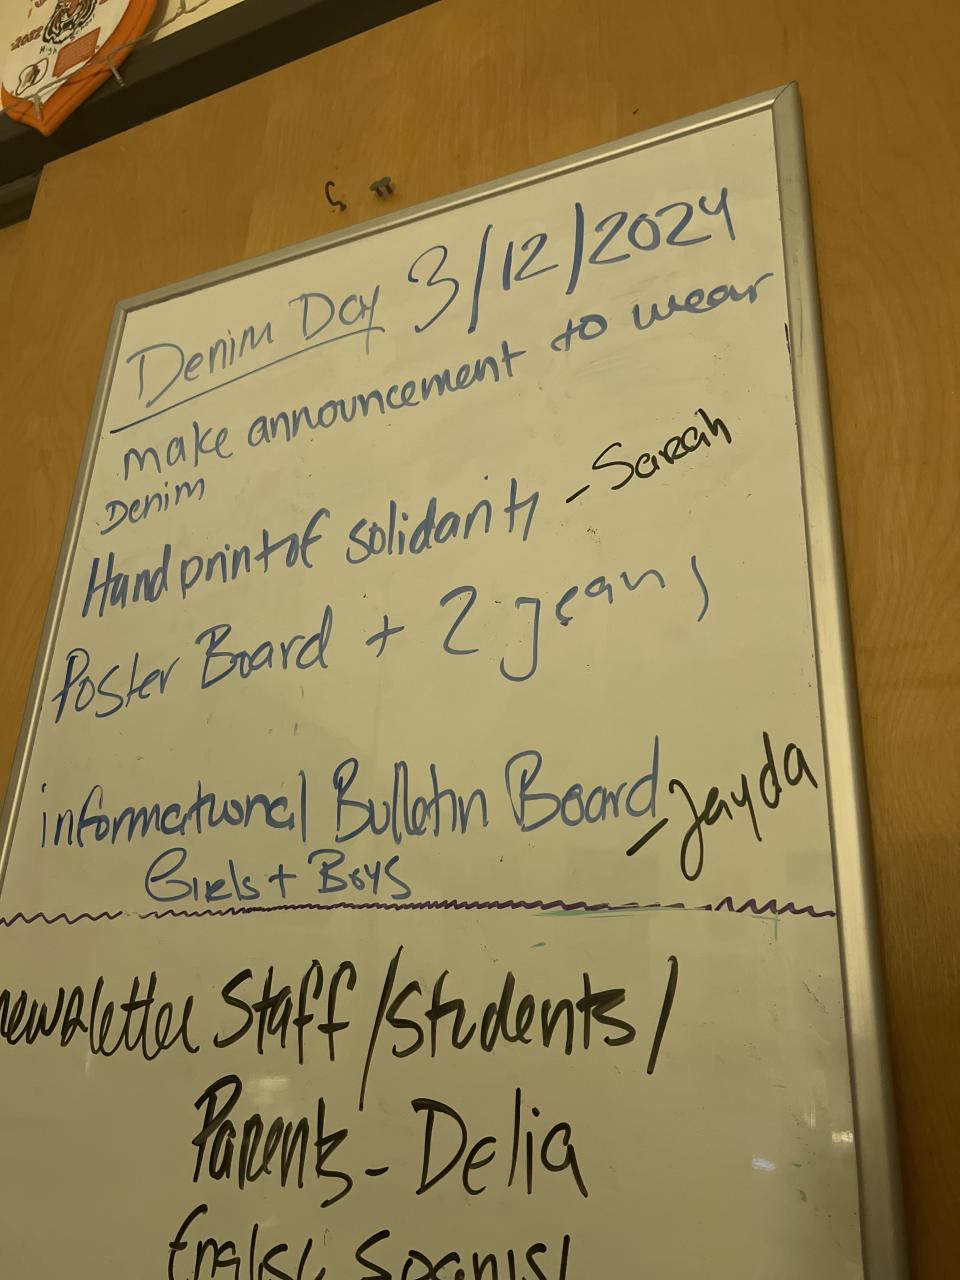 2032
High
Denim Day 3/12/2024
make announcement to wear
Denim
Handprint of solidarity - Sarah
Poster Board + 2 jeans
informational Bulletin Board - Jayda
Girls + Boys
newsletter Staff/Students/
Parents - Delia
English Spanish